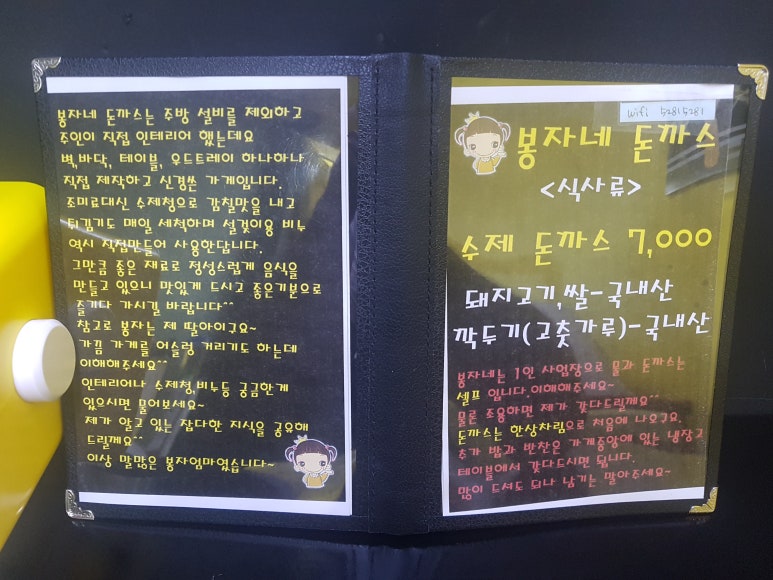 봉자네 돈까스는 주방 설비를 제외하고
주인이 직접 인테리어 했는데요
벽,바닥, 테이블, 우드트레이 하나하나
직접 제작하고 신경쓴 가게입니다.
조미료대신 수제청으로 감칠맛을 내고
튀김기도 매일 세척하며 설겆이용 비누
역시 직접만들어 사용한답니다.
그만큼 좋은 재료로 정성스럽게 음식을
만들고 있으니 맛있게 드시고 좋은기분으로
즐기다 가시길 바랍니다^^
참고로 봉자는 제 딸아이구요~
가끔 가게를 어슬렁 거리기도 하는데
이해해주세요^^
인테리어나 수제청,비누등 궁금한게
있으시면 물어보세요~
제가 알고 있는 잡다한 지식을 공유해
드릴께요^^
이상 말많은 봉자엄마였습니다~
wifi 52815281
봉자네 돈까스
<식사류>
수제 돈까스 7,000
돼지고기,쌀-국내산
깍두기(고춧가루)-국내산
봉자네는 1인 사업장으로 물과 돈까스는
셀프 입니다.이해해주세요~
물론 조용하면 제가 갖다드릴께요^^
돈까스는 한상차림으로 처음에 나오구요.
추가 밥과 반찬은 가게중앙에 있는 냉장고
테이블에서 갖다드시면 됩니다.
많이 드셔도 되나 남기는 말아주세요~